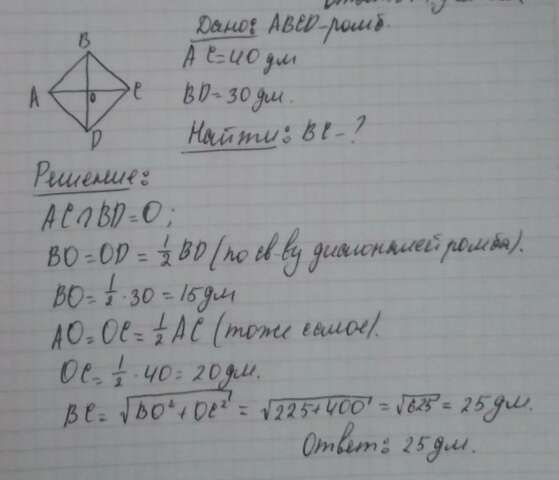 Дано: ABCD-ромб.
AC=40дм
BD=30дм.
Найти: BC-?
B
A
O
C
D
Решение:
AC∩BD=O;
BO=OD=1/2 BD (по св-ву диагоналей ромба).
BO=1/2·30=15дм
AO=OC=1/2 AC (тоже самое).
OC=1/2·40=20дм.
BC=√BO²+OC²=√225+400=√625=25дм.
Ответ: 25дм.